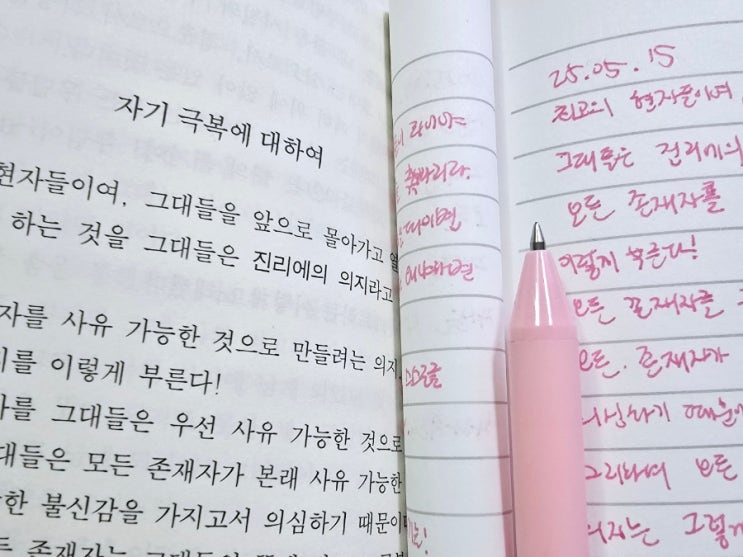 자기 극복에 대하여
현자들이여, 그대들을 앞으로 몰아가고 열
하는 것을 그대들은 진리에의 의지라고
자를 사유 가능한 것으로 만들려는 의지,
지를 이렇게 부른다!
자를 그대들은 우선 사유 가능한 것으로
대들은 모든 존재자가 본래 사유 가능한
한 불신감을 가지고서 의심하기 때문이다
존재자는 그대들의
25.05.15
최고의 현자들이여,
그대들은 진리에의
모든 존재자를
이렇게 부른다!
모든 존재자를 그
모든 존재자가
의심하기 때문이
그리하여 모든
그렇게